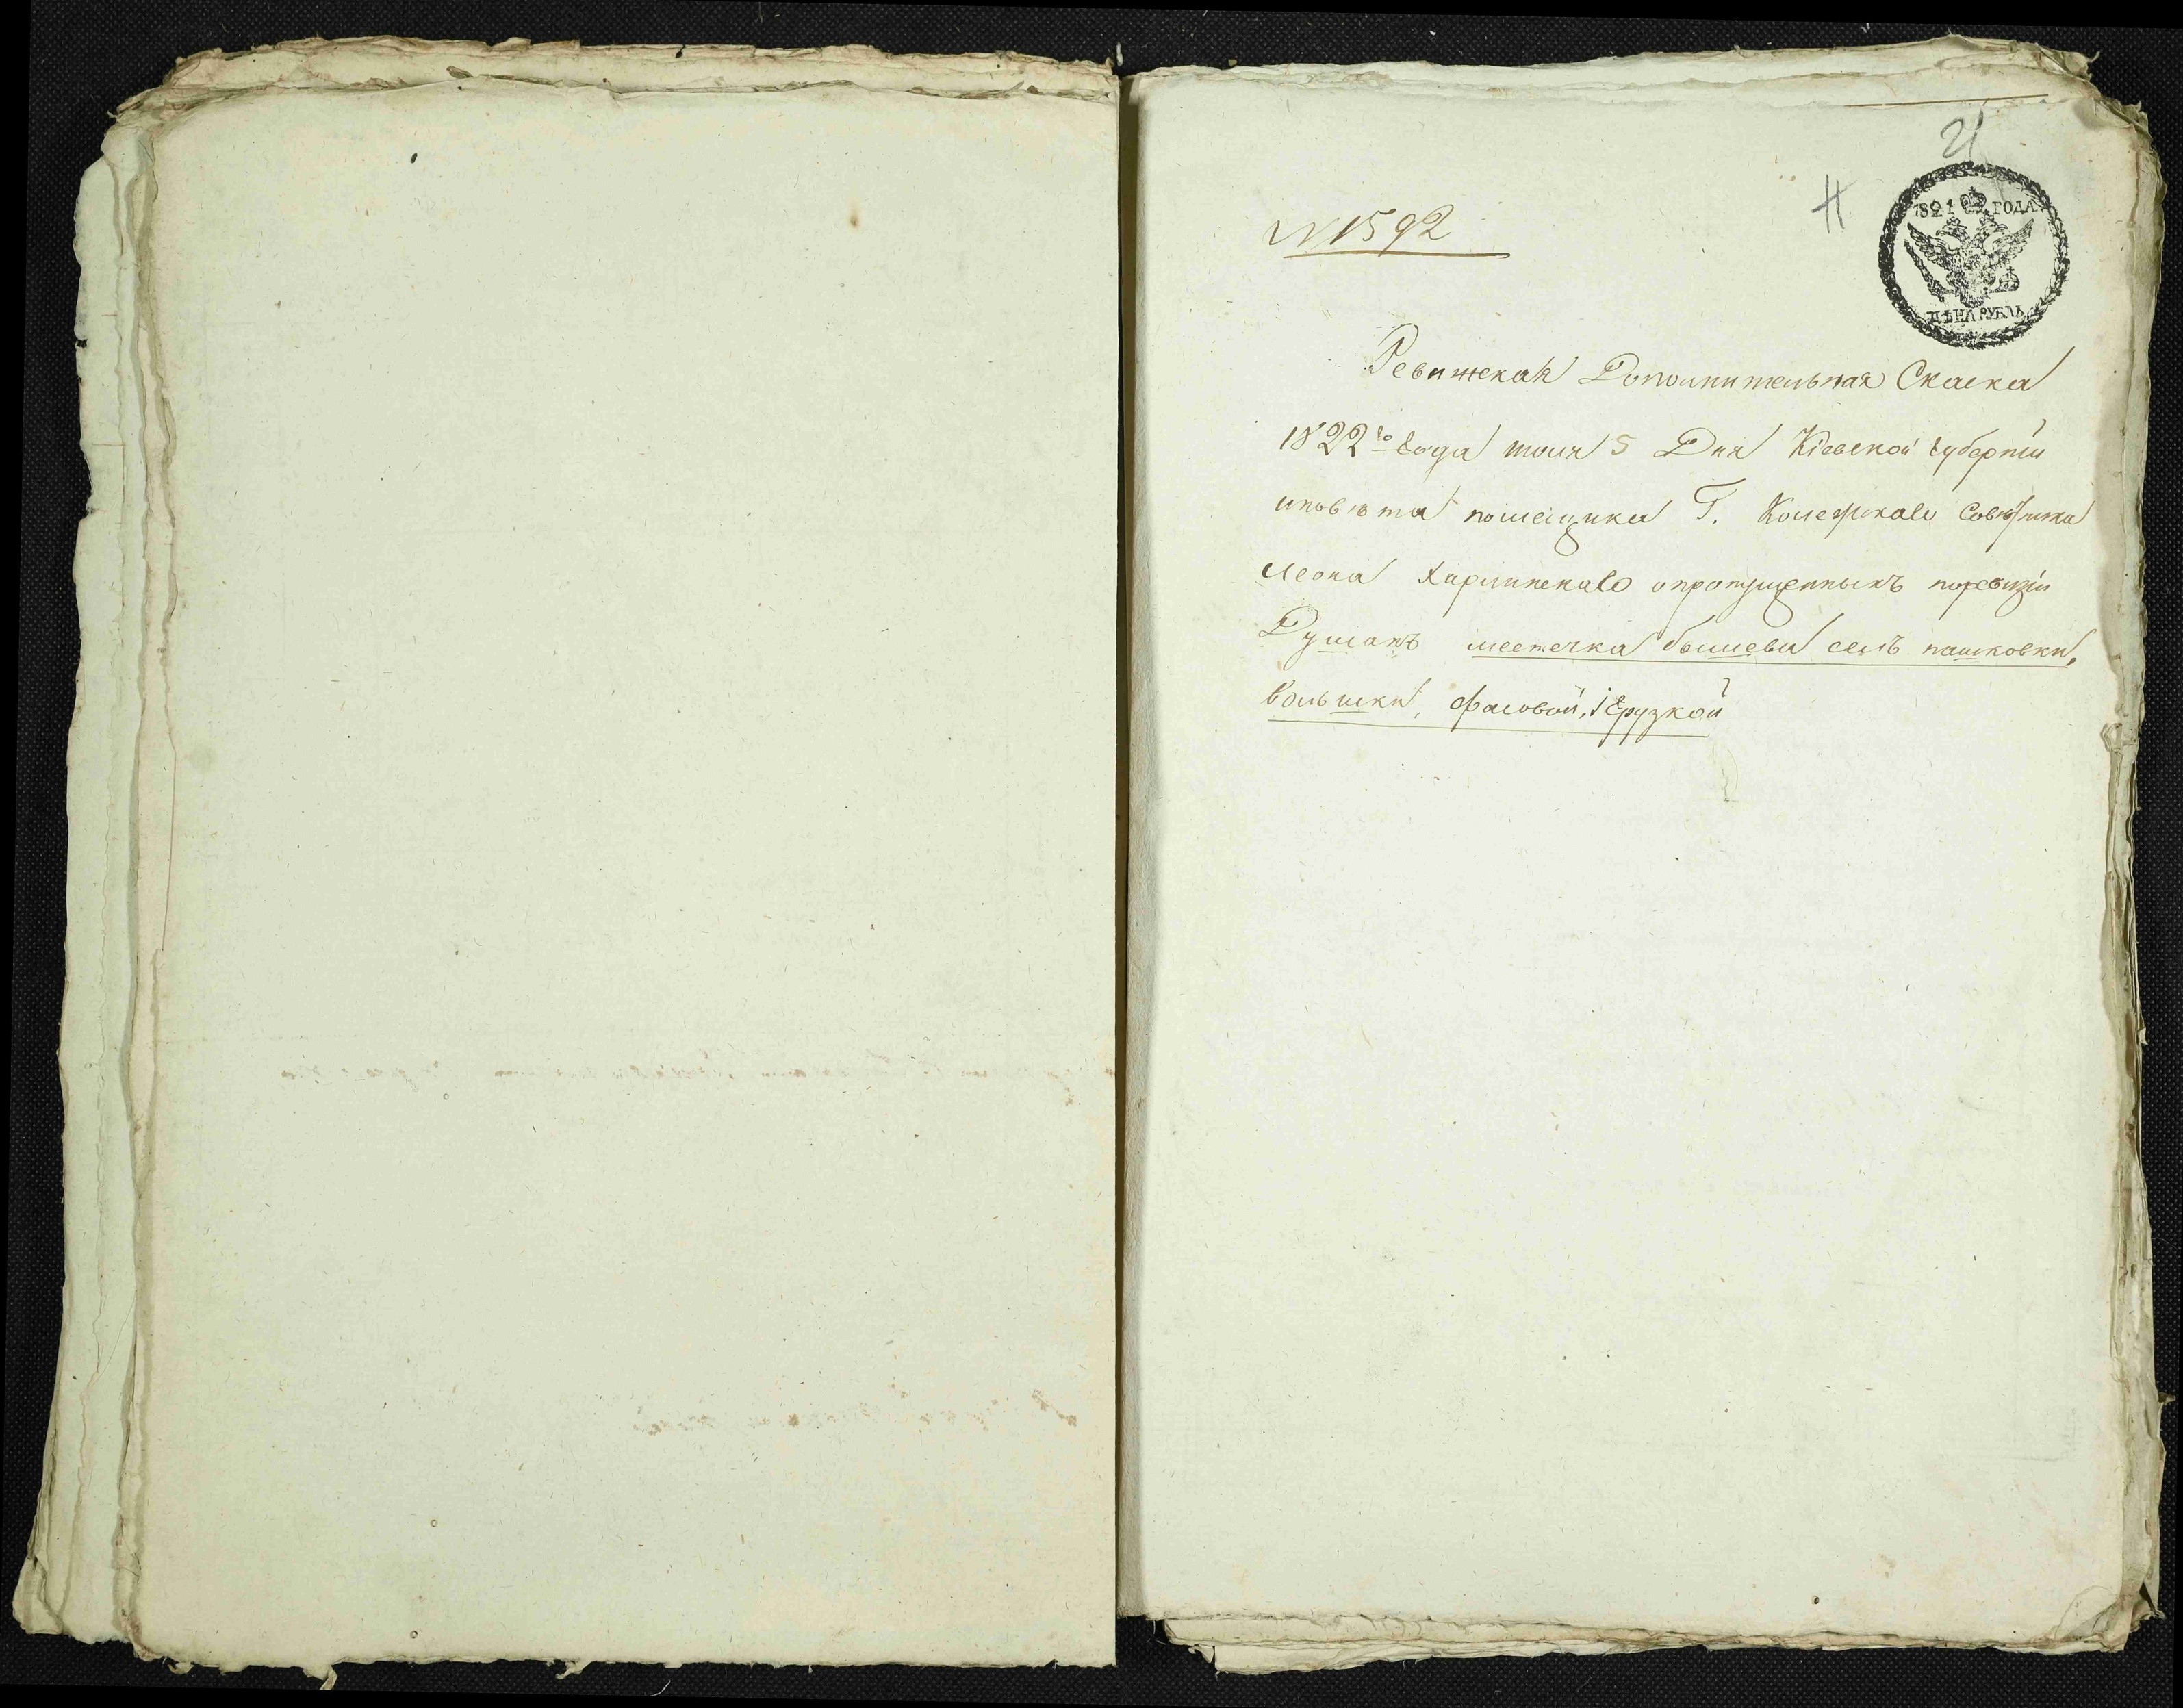 21
N 1592
1821 ГОДА
ЦѢНА РУБЛЬ
Ревижская Дополнительная Скаска
1822го года июля 5 Дня Кіевской губерніи
иповѣта помещика Г. Колежскаго Совѣтника
Леона Харлинскаго опропущенныхъ поревизіи
Душахъ местечка бышева селъ пашковки,
вольшки, фасовой, іГрузкой